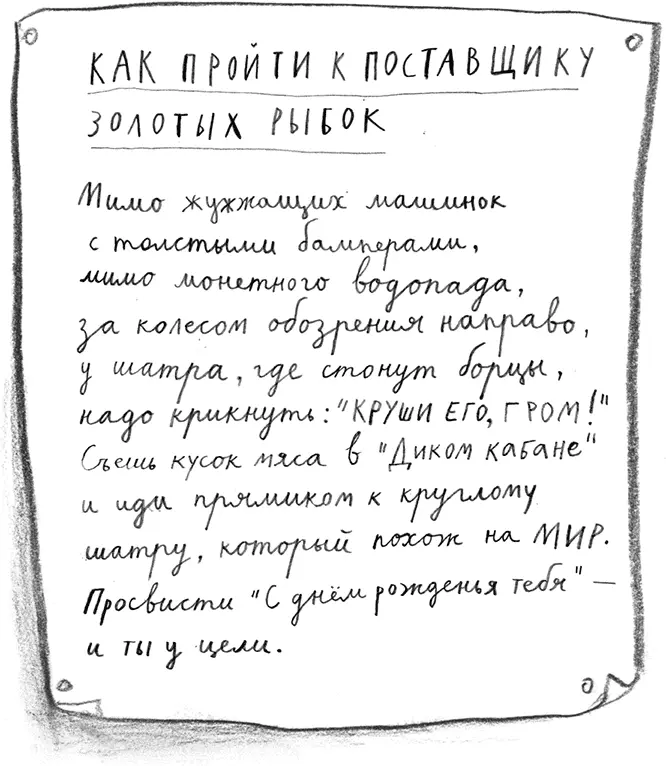 КАК ПРОЙТИ К ПОСТАВЩИКУ
ЗОЛОТЫХ РЫБОК
Мимо жужжащих машинок
с толстыми бамперами,
мимо монетного водопада,
за колесом обозрения направо,
у шатра, где стонут борцы,
надо крикнуть: "КРУШИ ЕГО, ГРОМ!"
Съешь кусок мяса в "Диком кабане"
и иди прямиком к круглому
шатру, который похож на МИР.
Просвисти "С днём рожденья тебя" —
и ты у цели.